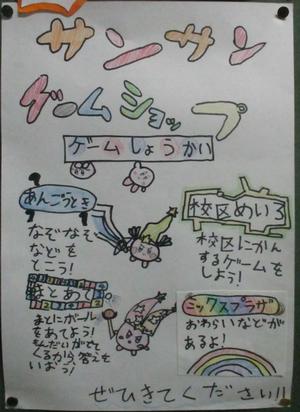 サンサン
ゲームショップ
ゲームしょうかい
あんごうとき
なぞなぞ
などを
とこう!
まとあて
まとにボール
をあてよう!
もんだいがでて
くるから、答えを
いおう!
校区めいろ
校区にかん
するゲームを
しよう!
ミックスプラザ
おわらいなどが
あるよ!
ぜひきてください!!